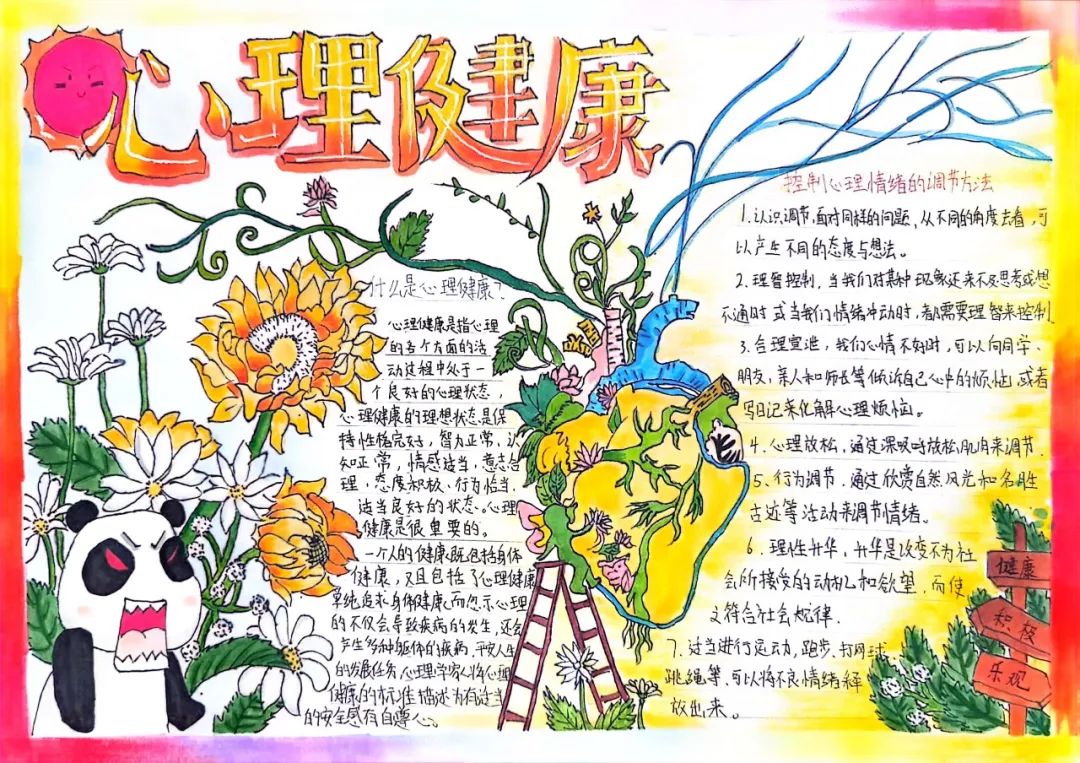 心理健康
什么是心理健康?
心理健康是指心理
的各个方面的活
动过程中处于一
个良好的心理状态,
心理健康的理想状态是保
持性格完好,智力正常,认
知正常,情感适当,意志合
理,态度积极、行为恰当,
适当良好的状态。心理
健康是很重要的。
一个人的健康既包括身体
健康,又且包括了心理健康
单纯追求身体健康,而忽示心理
的不仅会导致疾病的发生,还会
产生多种躯体的疾病,干扰人生
的发展任务,心理学家将心理
健康的标准描述为有适当
的安全感有自尊心。
控制心理情绪的调节方法
1.认识调节,面对同样的问题、从不同的角度去看,可
以产生不同的态度与想法。
2.理智控制,当我们对某种现象还来不及思考或想
不通时或当我们情绪冲动时,都需要理智来控制
3.合理宣泄,我们心情不好时,可以向同学、
朋友,亲人和师长等倾诉自己心中的烦恼,或者
写日记来化解心理烦恼。
4.心理放松,通过深呼吸放松肌肉来调节.
5、行为调节.通过欣赏自然风光和名胜
古迹等活动来调节情绪。
6.理性升华,升华是改变不为社
会所接受的动机和欲望,而使
之符合社会规律.
7.适当进行运动,跑步、打网球
跳绳等,可以将不良情绪释
放出来。
健康
积极
乐观